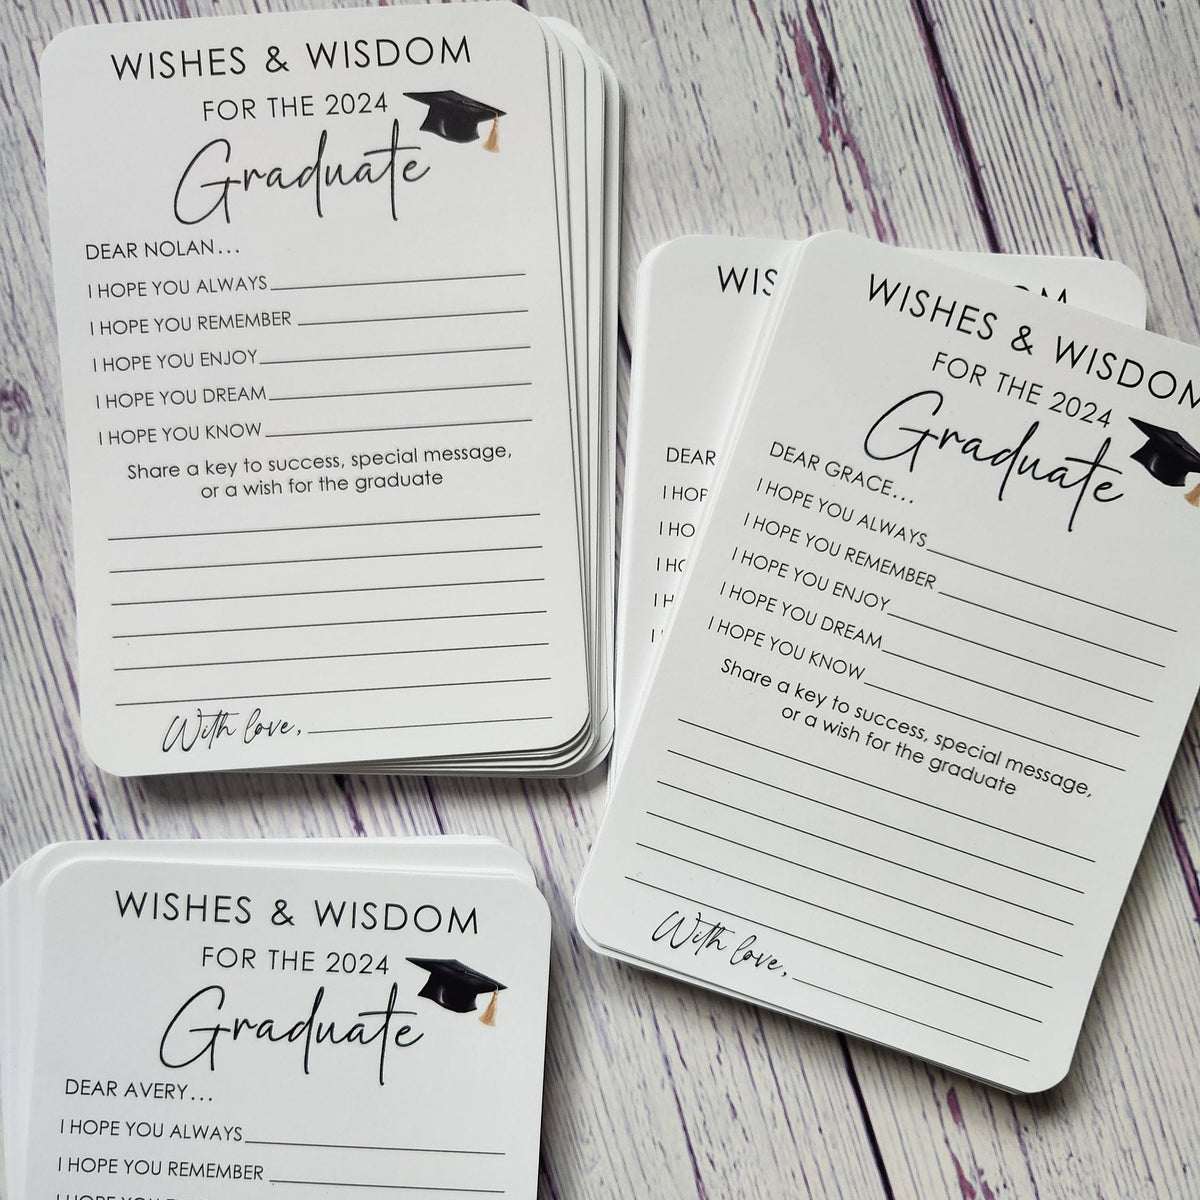 WISHES & WISDOM
FOR THE 2024
Graduate
DEAR NOLAN...
I HOPE YOU ALWAYS
I HOPE YOU REMEMBER
I HOPE YOU ENJOY
I HOPE YOU DREAM
I HOPE YOU KNOW
Share a key to success, special message,
or a wish for the graduate
With love,
WIS
DEAR
I HOP
I HO
WISHES & WISDOM
FOR THE 2024
Graduate
DEAR GRACE...
I HOPE YOU ALWAYS
I HOPE YOU REMEMBER
I HOPE YOU ENJOY
I HOPE YOU DREAM
I HOPE YOU KNOW
Share a key to success, special message,
or a wish for the graduate
With love,
WISHES & WISDOM
FOR THE 2024
Graduate
DEAR AVERY...
I HOPE YOU ALWAYS
I HOPE YOU REMEMBER